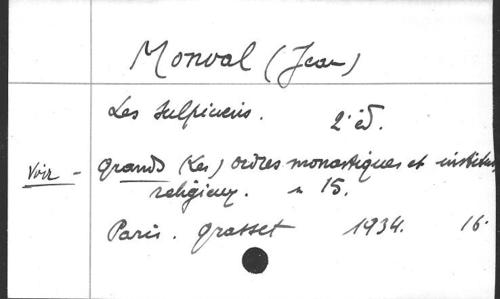 Monval (Jean)
Les Sulpiciens. 2e éd.
Voir - Grands (Les) ordres monastiques et instituts
religieux. n 15.
Paris. Grasset 1934. 16°